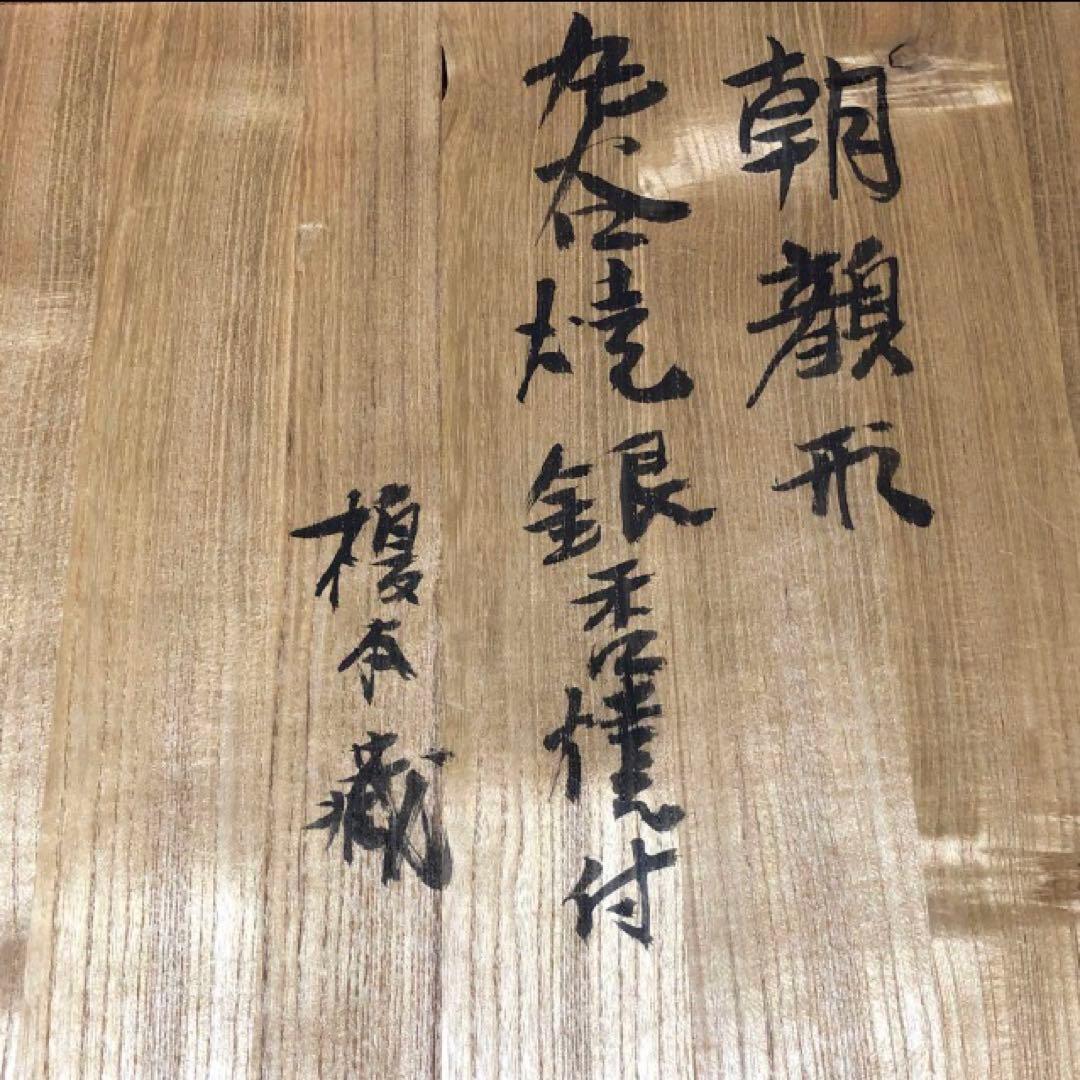 朝顔形
九谷焼銀香爐付
榎本藏